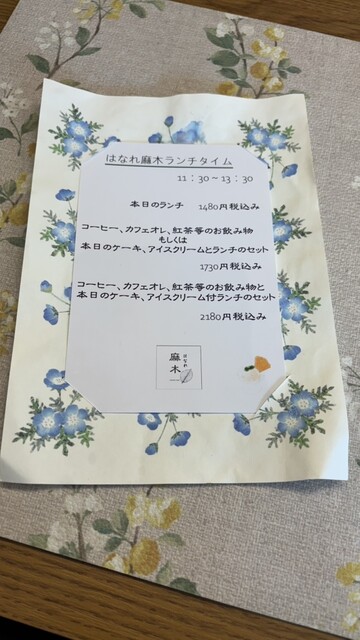 はなれ麻木ランチタイム
11：30～13：30
本日のランチ 1480円税込み
コーヒー、カフェオレ、紅茶等のお飲み物
もしくは
本日のケーキ、アイスクリームとランチのセット
1730円税込み
コーヒー、カフェオレ、紅茶等のお飲み物と
本日のケーキ、アイスクリーム付ランチのセット
2180円税込み
はなれ
麻木